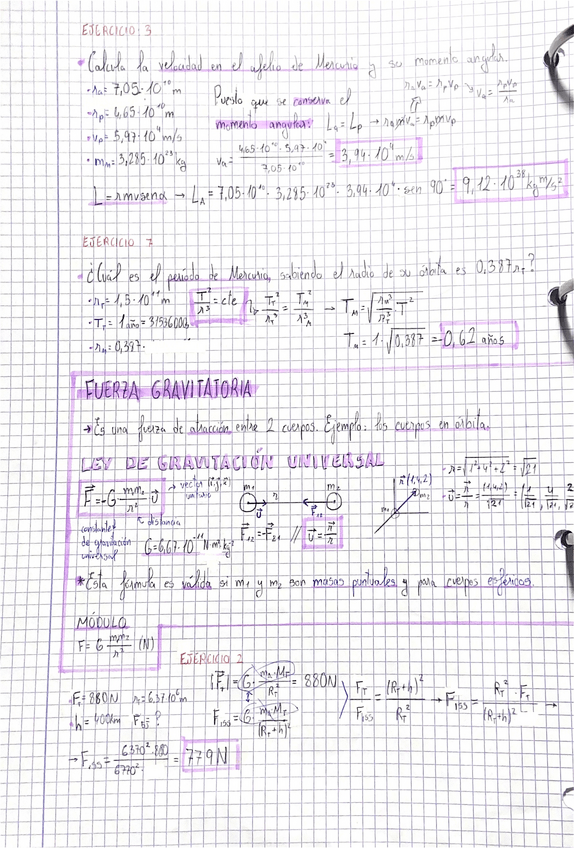 EJERCICIO: 3
• Calcula la velocidad en el afelio de Mercurio y su momento angular.
• rₐ = 7,05·10¹⁰ m
• rₚ = 4,65·10¹⁰ m
• vₚ = 5,97·10⁴ m/s
• mₘ = 3,285·10²³ kg
Puesto que se conserva el
momento angular: Lₐ = Lₚ → rₐmvₐ = rₚmvₚ
rₐvₐ = rₚvₚ → vₐ = rₚvₚ/rₐ
vₐ = 4,65·10¹⁰·5,97·10⁴/7,05·10¹⁰ = 3,94·10⁴ m/s
L = rmvsenα → L_A = 7,05·10¹⁰ · 3,285·10²³ · 3,94·10⁴ · sen 90° = 9,12·10³⁸ kg m/s²
EJERCICIO 7
• ¿Cuál es el periodo de Mercurio, sabiendo el radio de su órbita es 0,387 r_T?
• r_T = 1,5·10¹¹ m
• T_T = 1 año = 31536000s
• rₘ = 0,387·
T²/r³ = cte
T_T²/r_T³ = T_M²/r_M³ → T_M = √(r_M³/r_T³ · T²)
T_M = 1·√0,387 = 0,62 años
FUERZA GRAVITATORIA
→ Es una fuerza de atracción entre 2 cuerpos. Ejemplo: los cuerpos en órbita.
LEY DE GRAVITACIÓN UNIVERSAL
F⃗ = -G · m₁m₂/r² · u⃗ → vector unitario
constante de gravitación universal
distancia
G = 6,67·10⁻¹¹ N·m²·kg⁻²
m₁ m₂
F⃗₁₂ = -F⃗₂₁ // u⃗ = r⃗/r
r⃗ (1,4,2)
m₂
m₁
r = √(1²+4²+2²) = √21
u⃗ = r⃗/r = (1,4,2)/√21 = (1/√21, 4/√21, 2
* Esta fórmula es válida si m₁ y m₂ son masas puntuales y para cuerpos esféricos.
MÓDULO
F = G m₁m₂/r² (N)
EJERCICIO 2
F_T = 880N r_T = 6,37·10⁶ m
h = 400km
|F⃗_T| = G · mₐ·M_T/R_T² = 880N
F_ISS = G · mₐ·M_T/(R_T+h)²
F_T/F_ISS = (R_T+h)²/R_T² → F_ISS = R_T²·F_T/(R_T+h)² →
→ F_ISS = 6370²·880/6770² = 779N